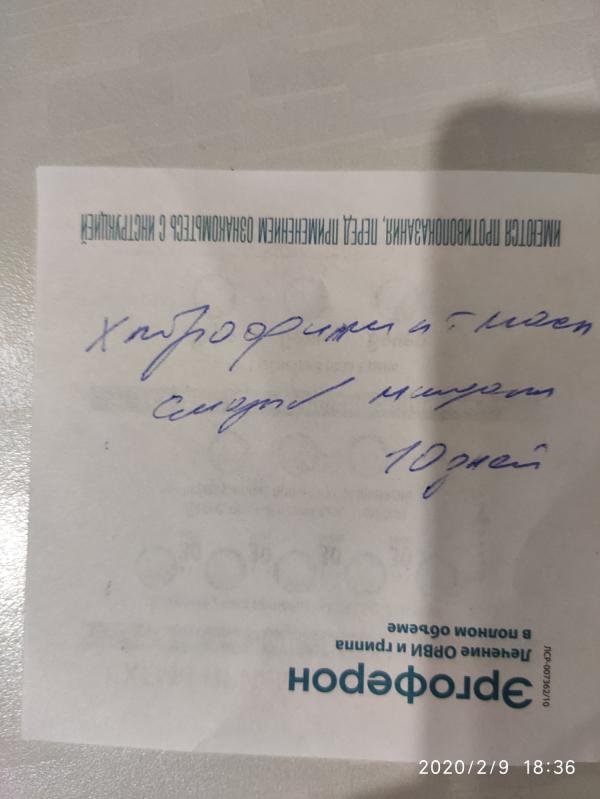 ИМЕЮТСЯ ПРОТИВОПОКАЗАНИЯ, ПЕРЕД ПРИМЕНЕНИЕМ ОЗНАКОМЬТЕСЬ С ИНСТРУКЦИЕЙ
Хлорофиллипт масл
смазыв миндал
10 дней
Эргоферон
Лечение ОРВИ и гриппа
в полном объеме
ЛСР-007362/10
2020/2/9 18:36